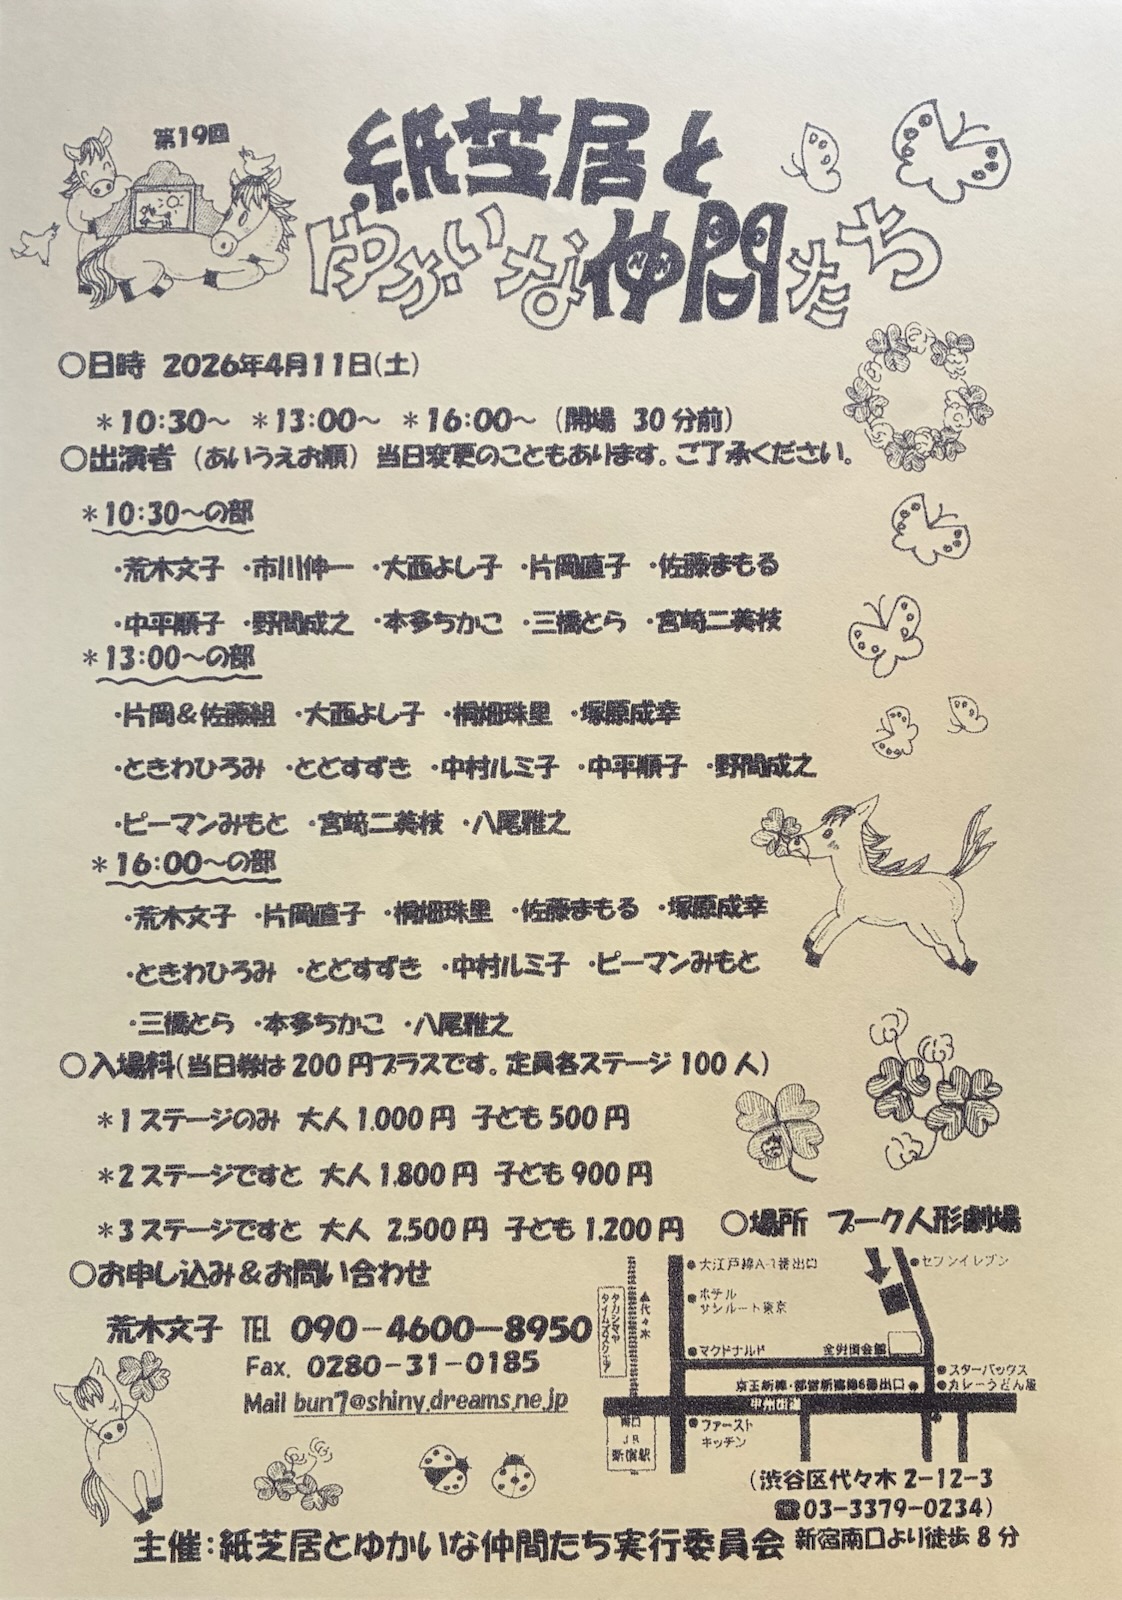 第19回
紙芝居と
ゆかいな仲間たち
○日時 2026年4月11日(土)
＊10:30～ ＊13:00～ ＊16:00～ (開場 30分前)
○出演者 (あいうえお順) 当日変更のこともあります。ご了承ください。
＊10:30～の部
・荒木文子 ・市川伸一 ・大西よし子 ・片岡直子 ・佐藤まもる
・中平順子 ・野間成之 ・本多ちかこ ・三橋とら ・宮﨑二美枝
＊13:00～の部
・片岡＆佐藤組 ・大西よし子 ・桐畑珠里 ・塚原成幸
・ときわひろみ ・とどすずき ・中村ルミ子 ・中平順子 ・野間成之
・ピーマンみもと ・宮﨑二美枝 ・八尾雅之
＊16:00～の部
・荒木文子 ・片岡直子 ・桐畑珠里 ・佐藤まもる ・塚原成幸
・ときわひろみ ・とどすずき ・中村ルミ子 ・ピーマンみもと
・三橋とら ・本多ちかこ ・八尾雅之
○入場料(当日券は200円プラスです。定員各ステージ100人)
＊1ステージのみ 大人1.000円 子ども500円
＊2ステージですと 大人1,800円 子ども900円
＊3ステージですと 大人 2.500円 子ども1.200円
○場所 プーク人形劇場
○お申し込み＆お問い合わせ
荒木文子 TEL 090－4600－8950
Fax. 0280－31－0185
Mail bun7@shiny.dreams.ne.jp
大江戸線A-1番出口
セブンイレブン
ホテル
サンルート東京
▲代々木
タカシマヤ
タイムズスクエア
マクドナルド
全労済会館
スターバックス
カレーうどん屋
京王新線・都営新宿線6番出口
甲州街道
南口
JR
新宿駅
ファースト
キッチン
(渋谷区代々木2-12-3
☎03-3379-0234)
新宿南口より徒歩8分
主催:紙芝居とゆかいな仲間たち実行委員会